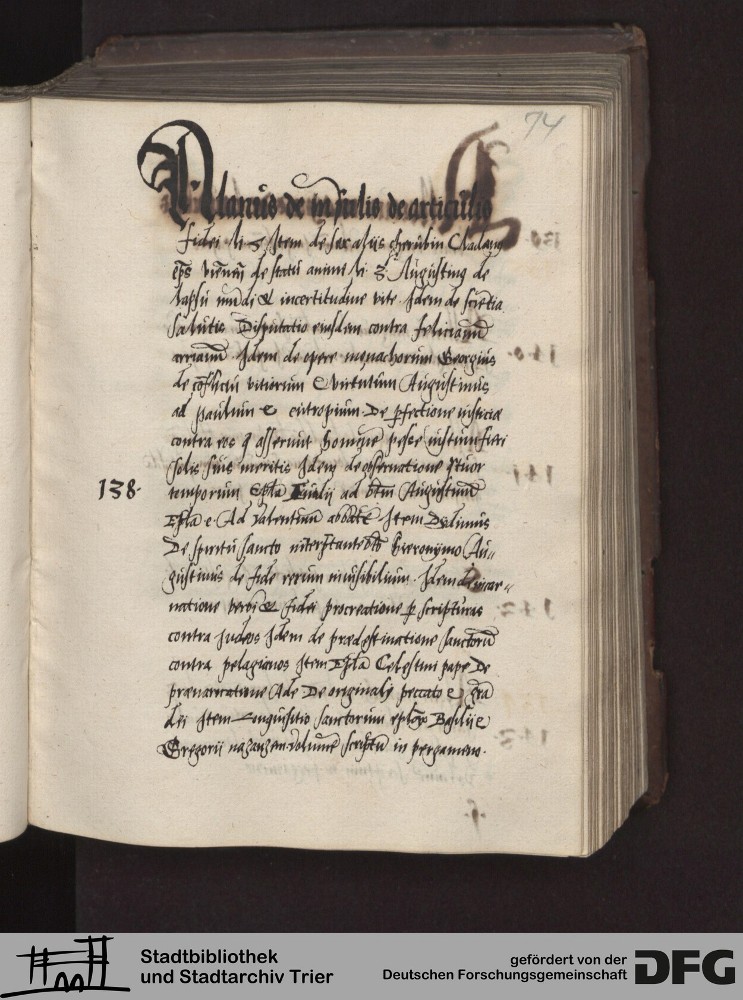 74
Alanus de insulis de articulis
fidei li 5 Item de sex aliis cherubin Claudianus
eps vienen de statu anime li 3 Augustinus de
lapsu mundi & incertitudine vite Idem de scientia
salutis Disputatio eiusdem contra felicianū
arrianū Idem de opere monachorum Georgius
de cōflictu vitiorum & virtutum Augustinus
ad paulum & eutropium De pfectione iusticiæ
contra eos q asserunt hominē posse iustum fieri
solis suis meritis Idem de obseruatione qtuor
138. temporum Epła Iulij ad btm Augustinū
Epła e. Ad valentinū abbatē Item Didimus
De spiritu sancto interptante bto hieronÿmo Au„
gustinus de fide rerum inuisibilium. Idem de incar„
natione verbi & fidei procreatione p scripturas
contra Judeos Idem de prædestinatione sanctorū
contra pelagianos Item Epła Celestini pape De
præuaricatione Ade De originali peccato & gra
dei Item Inquisitio sanctorum epłoꝝ Basilii &
Gregorii nazanzen. Volumē scriptū in pergameno.
Stadtbibliothek
und Stadtarchiv Trier
gefördert von der
Deutschen Forschungsgemeinschaft
DFG